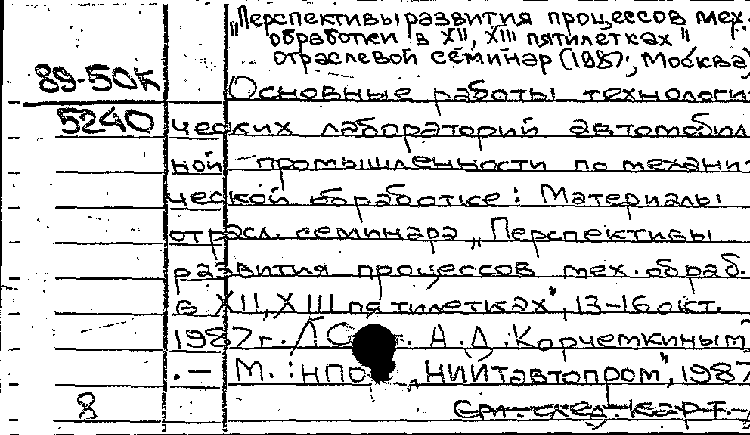 „Перспективы развития процессов мех.
обработки в XII, XIII пятилетках"
отраслевой семинар (1987; Москва)
89-50к
Основные работы технологи-
5240 ческих лабораторий автомобил
ной промышленности по механи-
ческой обработке: Материалы
отрасл. семинара „Перспективы
развития процессов мех. обраб.
в XII, XIII пятилетках", 13-16 окт.
1987 г. / А.Д. Корчемкиным
.— М.: НПО „НИИТавтопром", 1987
8 См. след. карт.